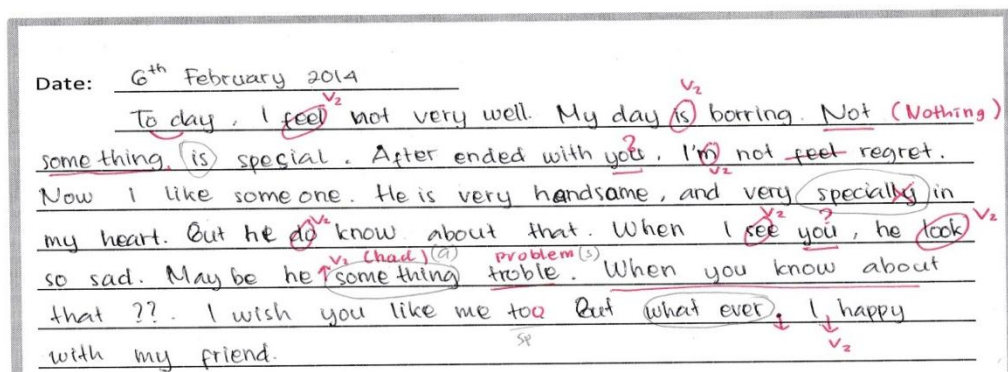 Date: 6th February 2014
V2 V2
To day, I feel not very well. My day is borring. Not (Nothing)
some thing, is special. After ended with you?, I'm not feel regret.
V2
Now I like some one. He is very handsame, and very specially in
V2 V2 ? V2
my heart. But he do know about that. When I see you, he look
V2 (had) (a) problem (s)
so sad. May be he some thing troble. When you know about
that ??. I wish you like me too But what ever. I happy
sp V2
with my friend.